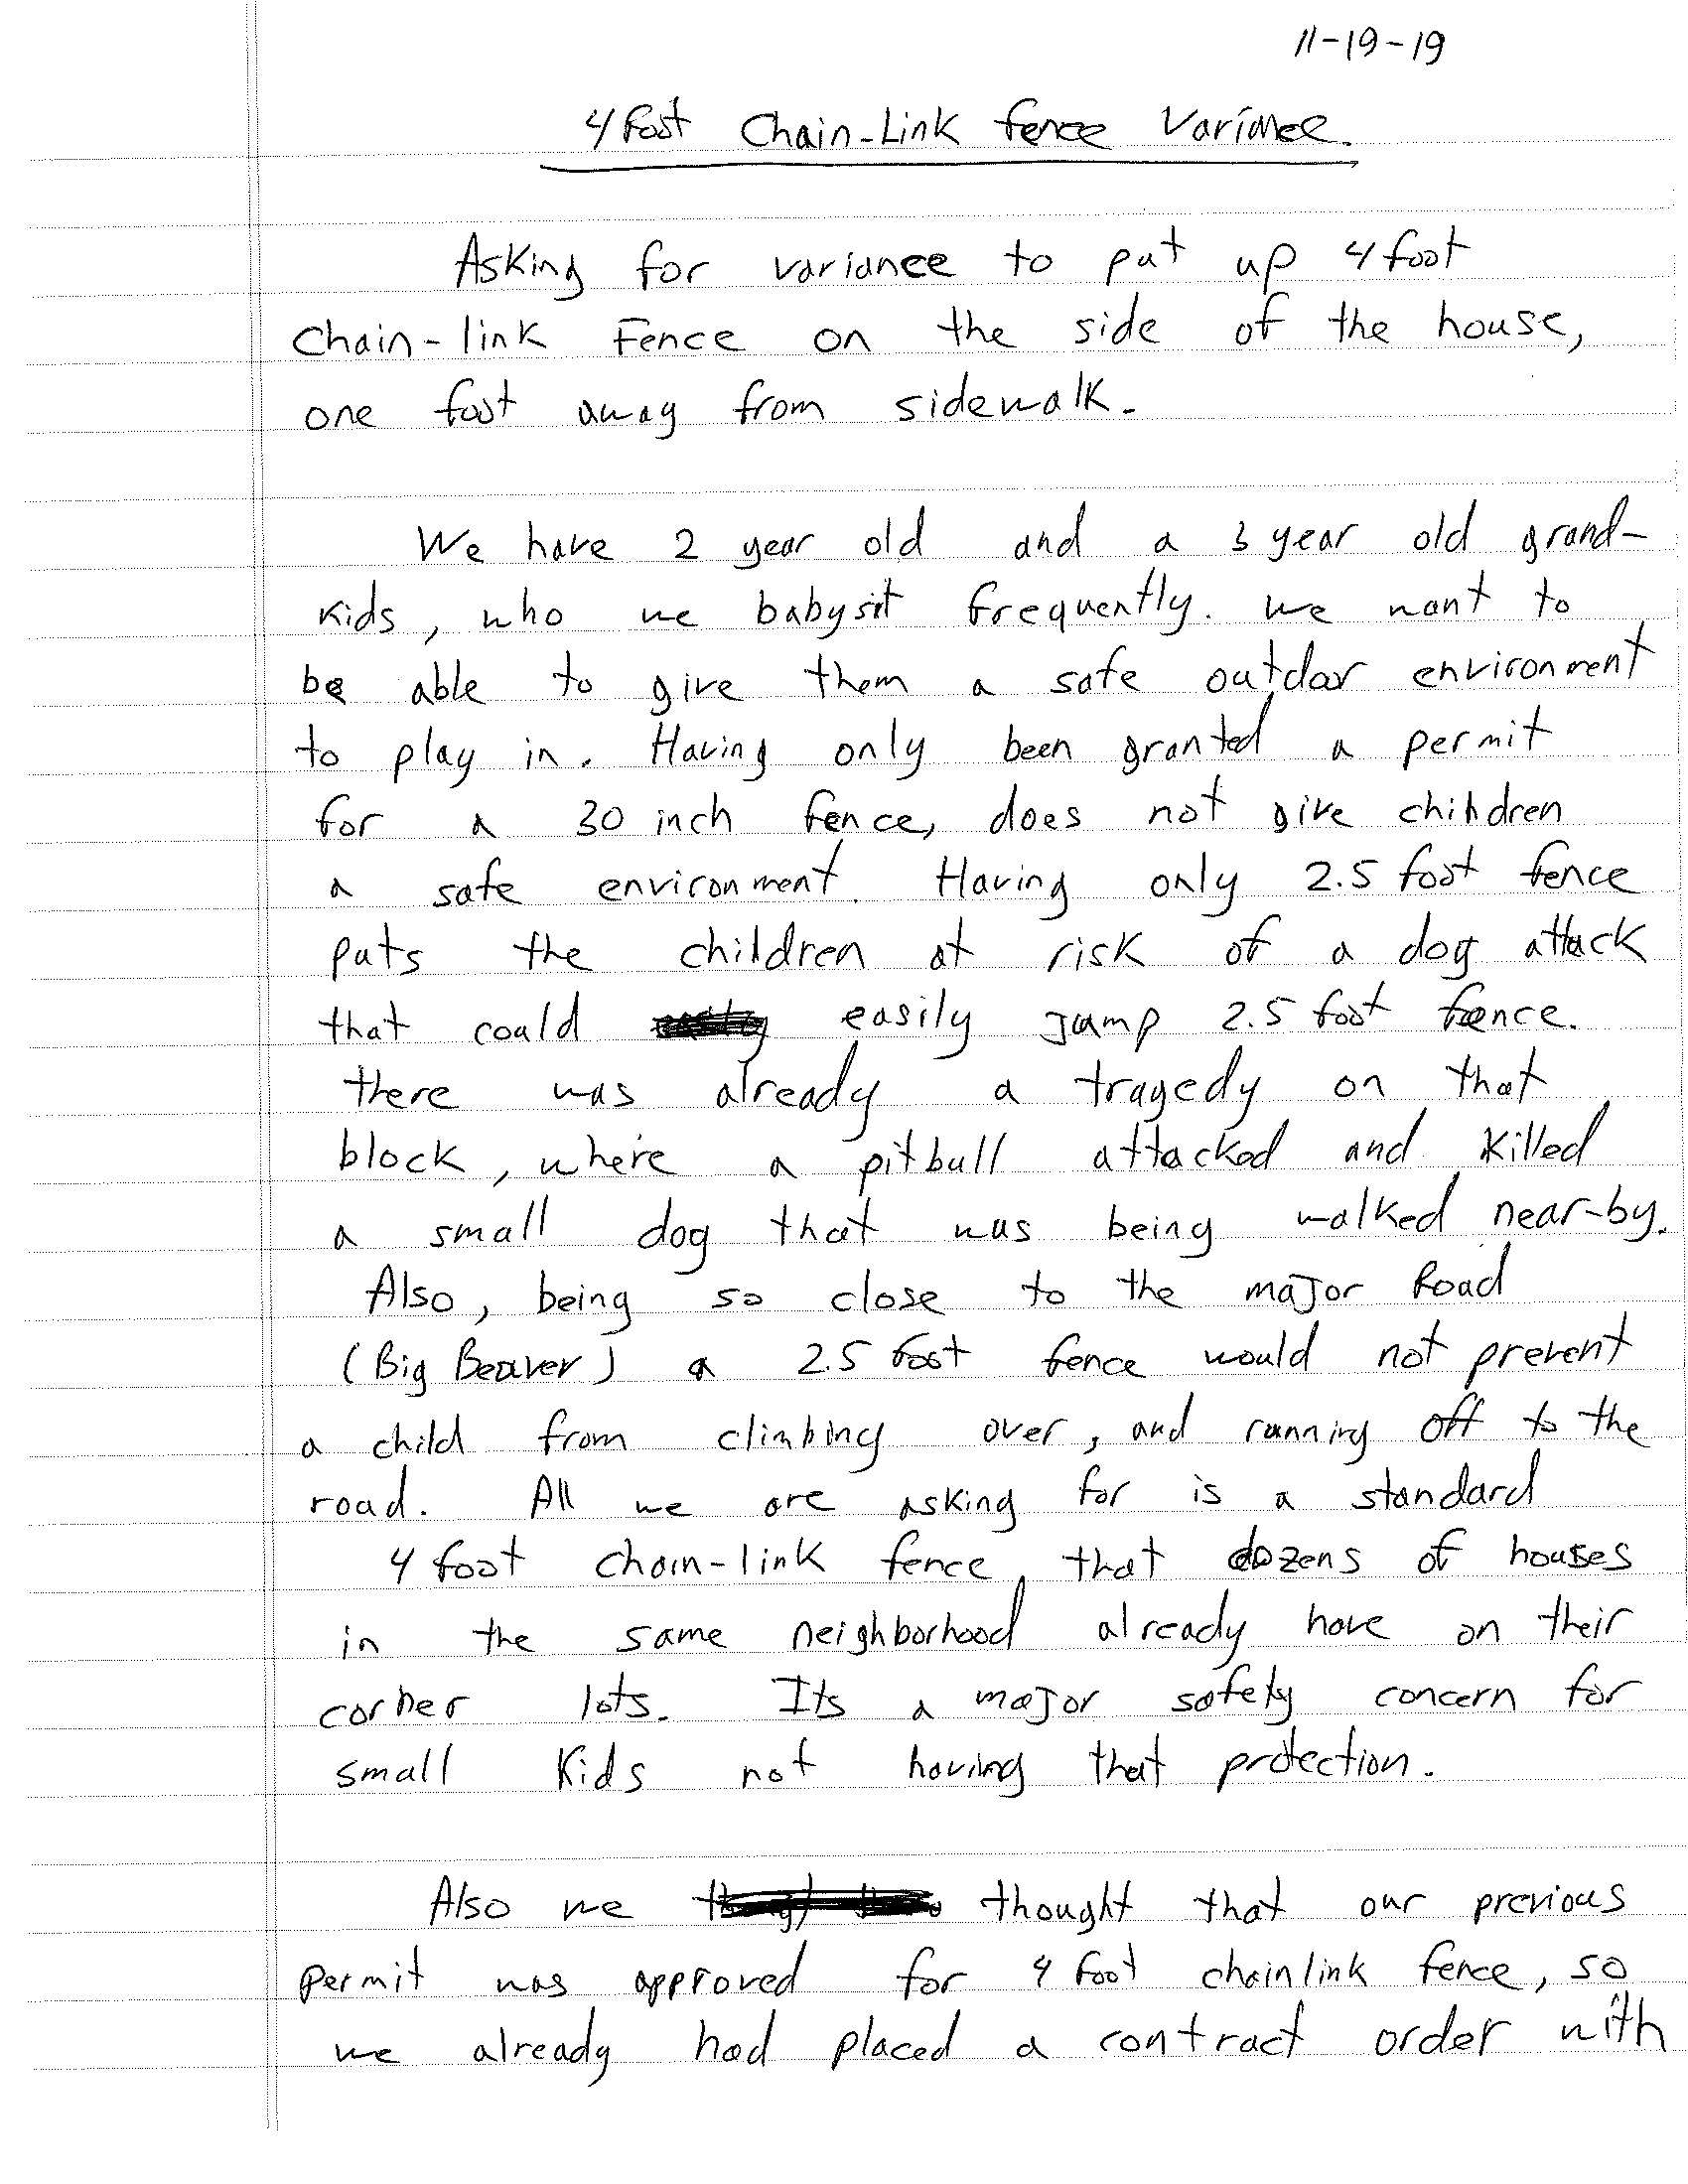 11-19-19
4 foot Chain-Link fence Variance.
Asking for variance to put up 4 foot
Chain-link Fence on the side of the house,
one foot away from sidewalk.
We have 2 year old and a 3 year old grand-
kids, who we babysit frequently. we want to
be able to give them a safe outdoor environment
to play in. Having only been granted a permit
for a 30 inch fence, does not give children
a safe environment. Having only 2.5 foot fence
puts the children at risk of a dog attack
that could easily jump 2.5 foot fence.
there was already a tragedy on that
block, where a pitbull attacked and killed
a small dog that was being walked near-by.
Also, being so close to the major Road
(Big Beaver) a 2.5 foot fence would not prevent
a child from climbing over, and running off to the
road. All we are asking for is a standard
4 foot chain-link fence, that dozens of houses
in the same neighborhood already have on their
corner lots. Its a major safety concern for
small kids not having that protection.
Also we thought that our previous
permit was approved for 4 foot chainlink fence, so
we already had placed a contract order with